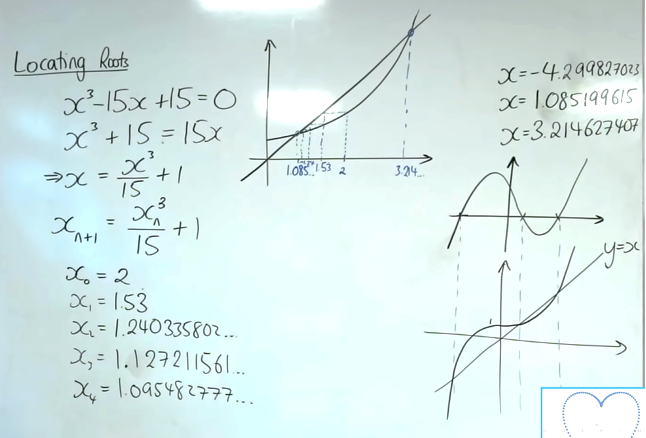 Locating Roots
x³-15x+15=0
x³+15=15x
⇒x = x³/15 + 1
xₙ₊₁ = xₙ³/15 + 1
x₀ = 2
x₁ = 1.53̇
x₂ = 1.240335802...
x₃ = 1.127211561...
x₄ = 1.095482777...
1.085.. 1.53 2 3.214...
x=-4.299827023
x=1.085199615
x=3.214627407
y=x
1